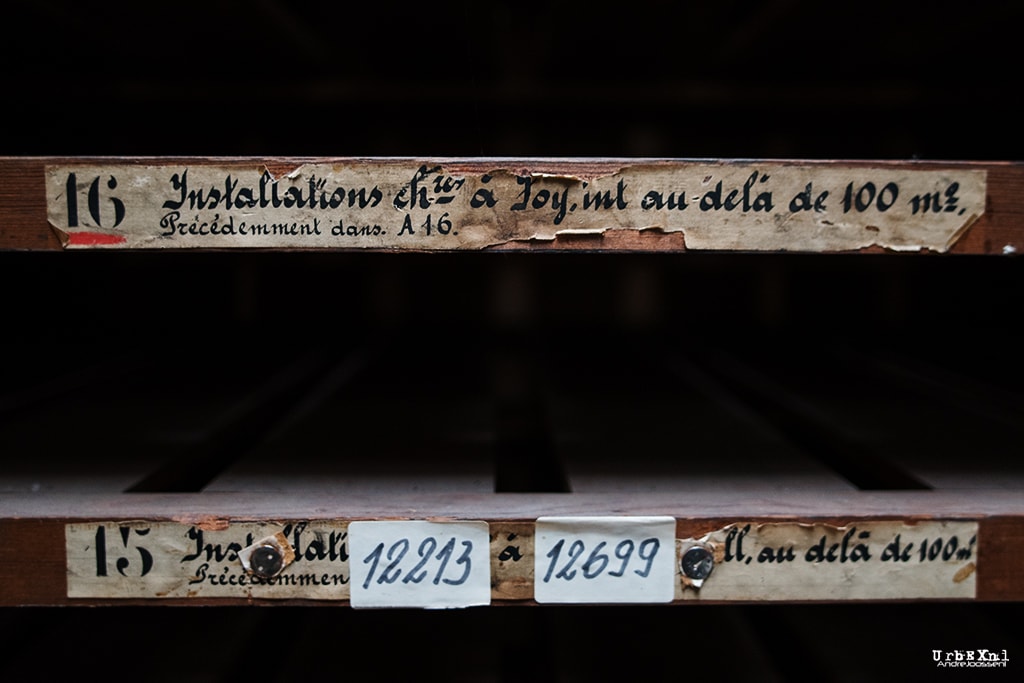 16 Installations chres à Foy. int au-delà de 100 m2.
Précédemment dans. A 16.
15 Inst llati 12213 à 12699 ll, au delà de 100 m2
Précé emmen
UrbEXnl
AndreJoosse.nl